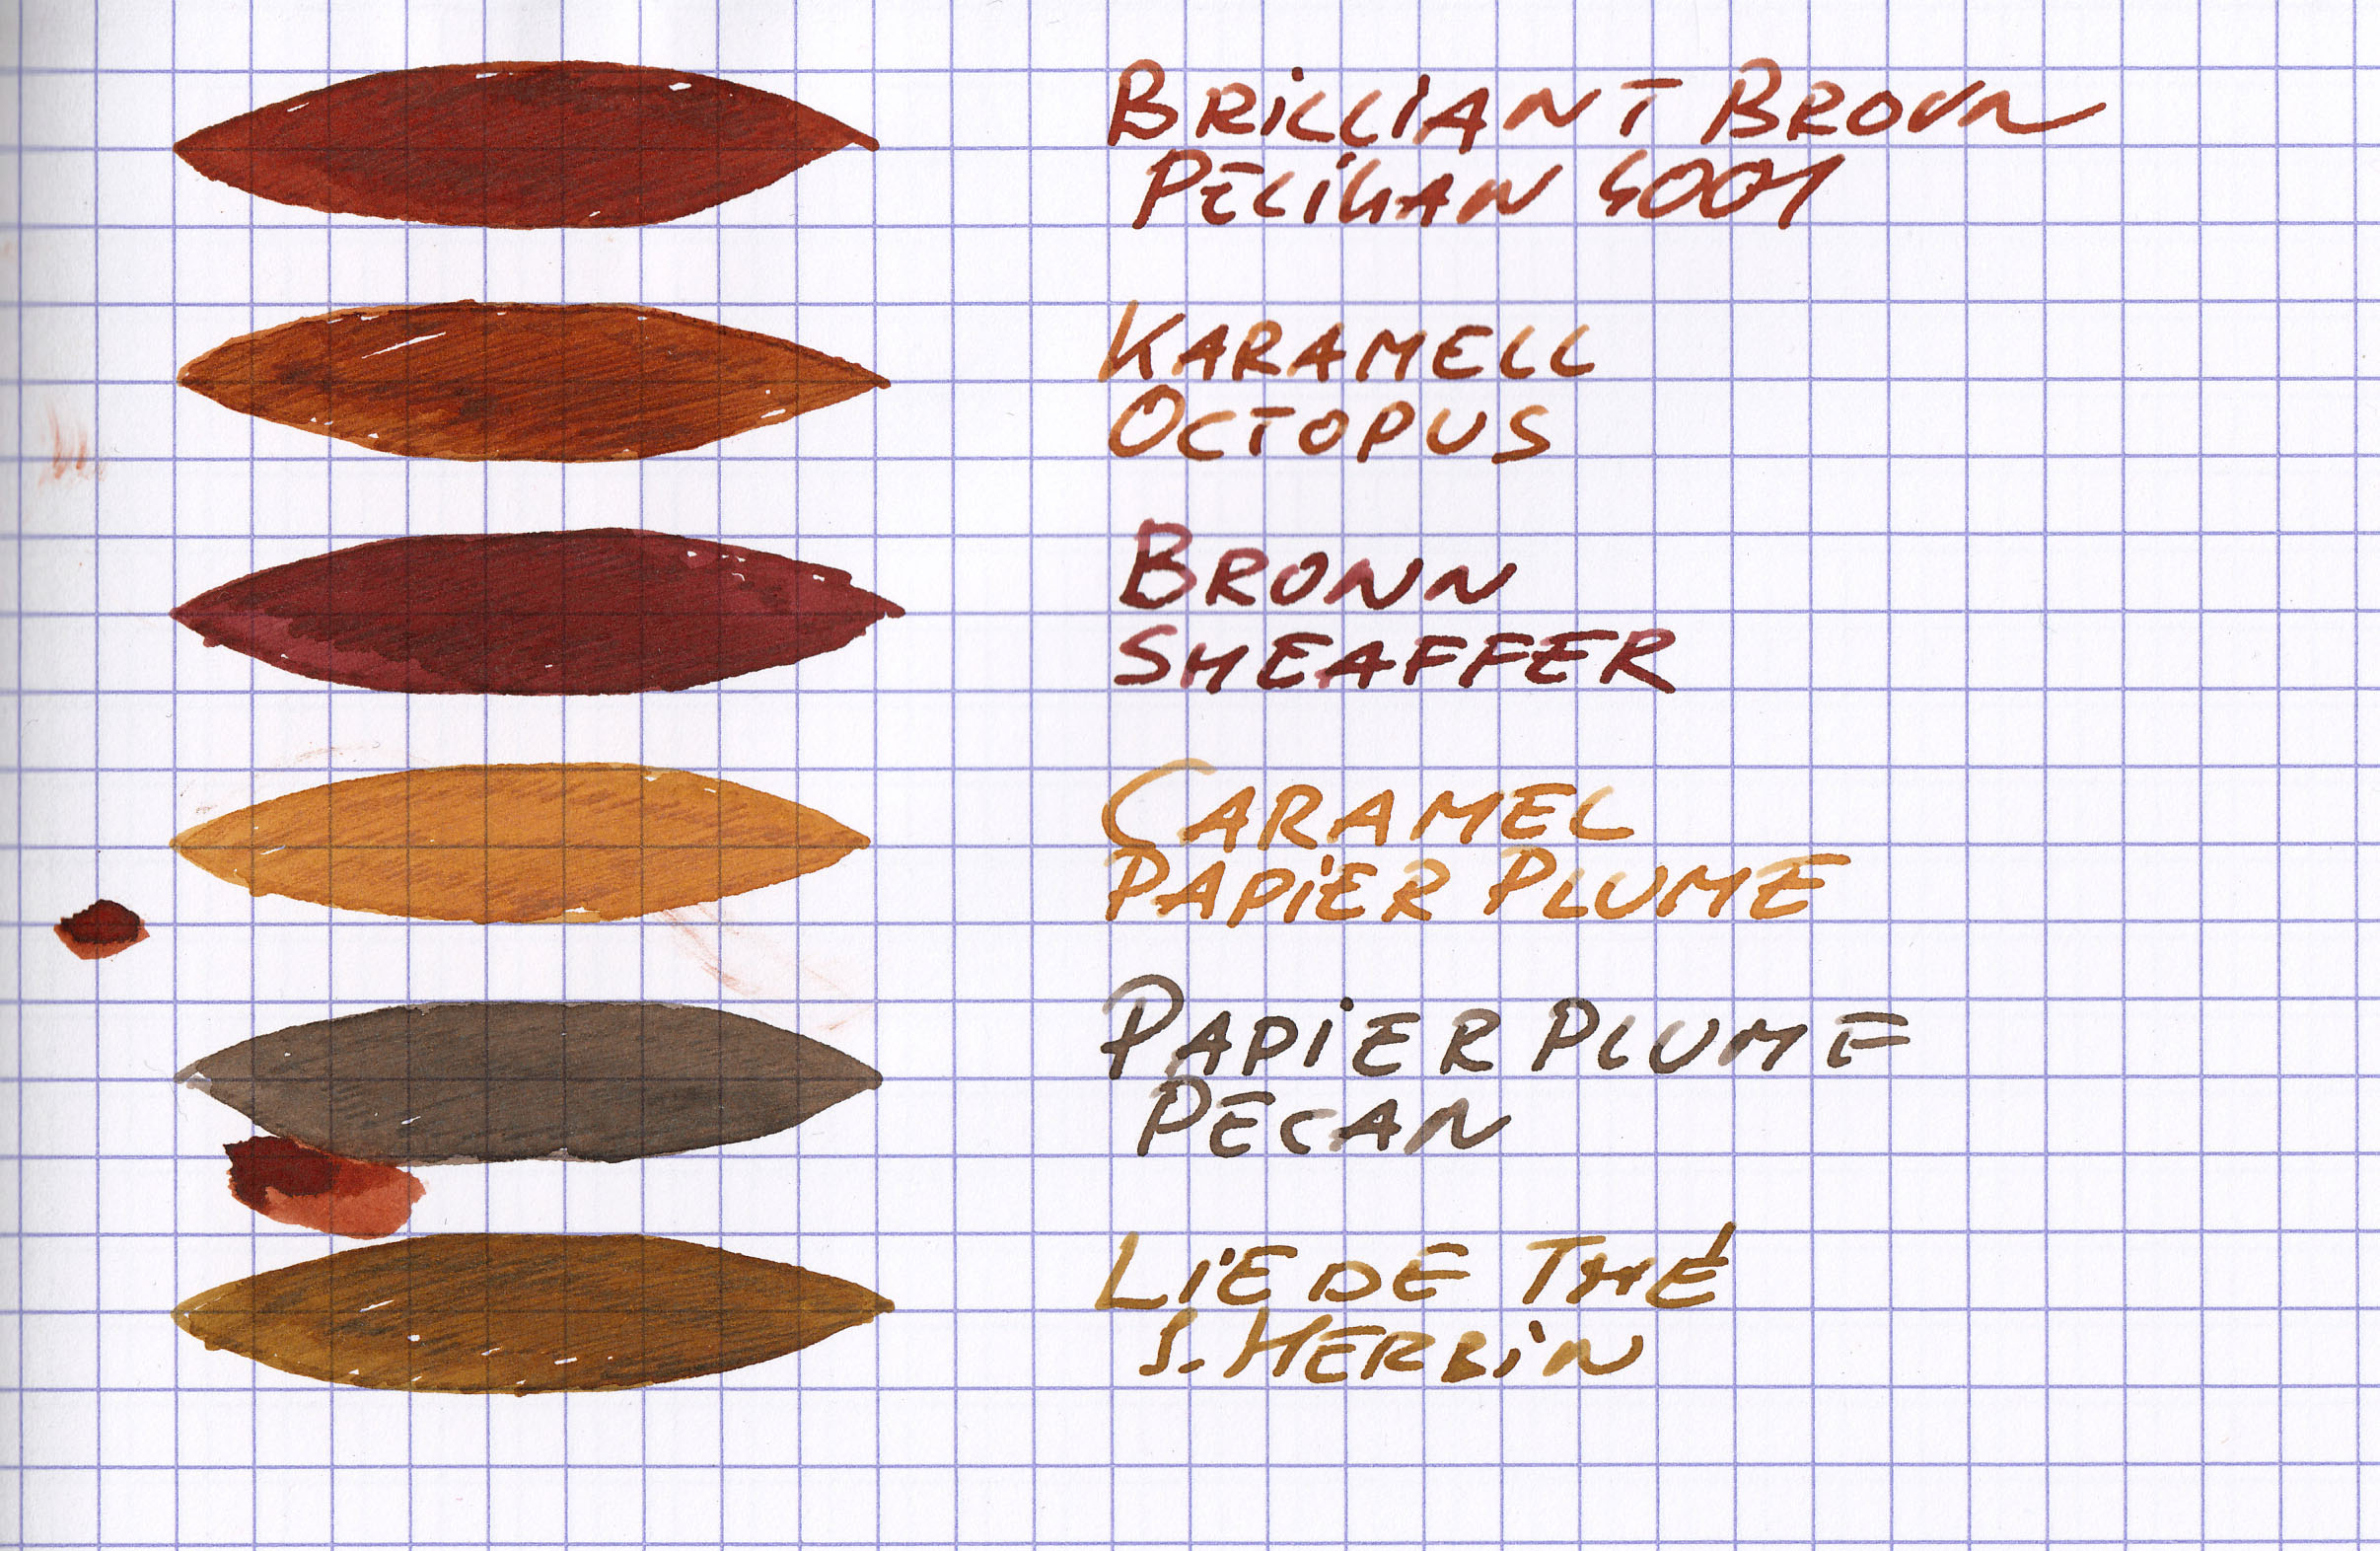 BRILLIANT BROWN
PELIKAN 4001
KARAMELL
OCTOPUS
BROWN
SHEAFFER
CARAMEL
PAPIER PLUME
PAPIER PLUME
PECAN
LIE DE THÉ
J. HERBIN